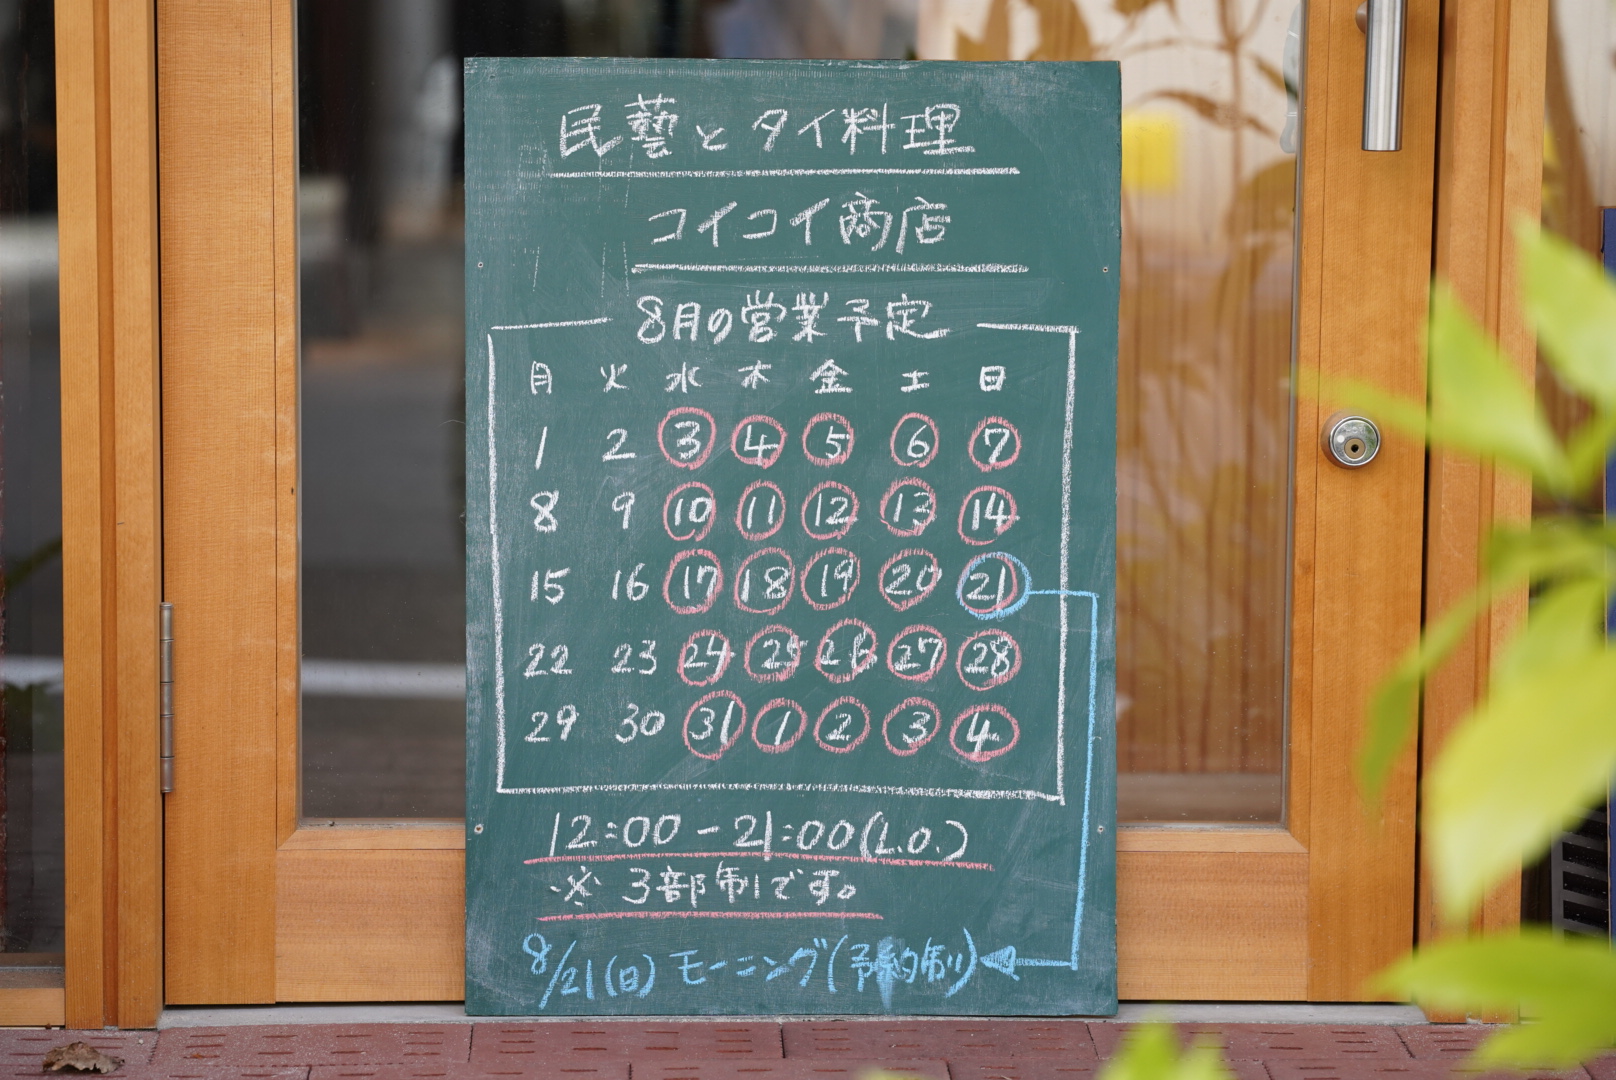 民藝とタイ料理
コイコイ商店
8月の営業予定
月 火 水 木 金 土 日
1 2 3 4 5 6 7
8 9 10 11 12 13 14
15 16 17 18 19 20 21
22 23 24 25 26 27 28
29 30 31 1 2 3 4
12:00-21:00(L.O.)
※3部制です。
8/21(日)モーニング(予約制)